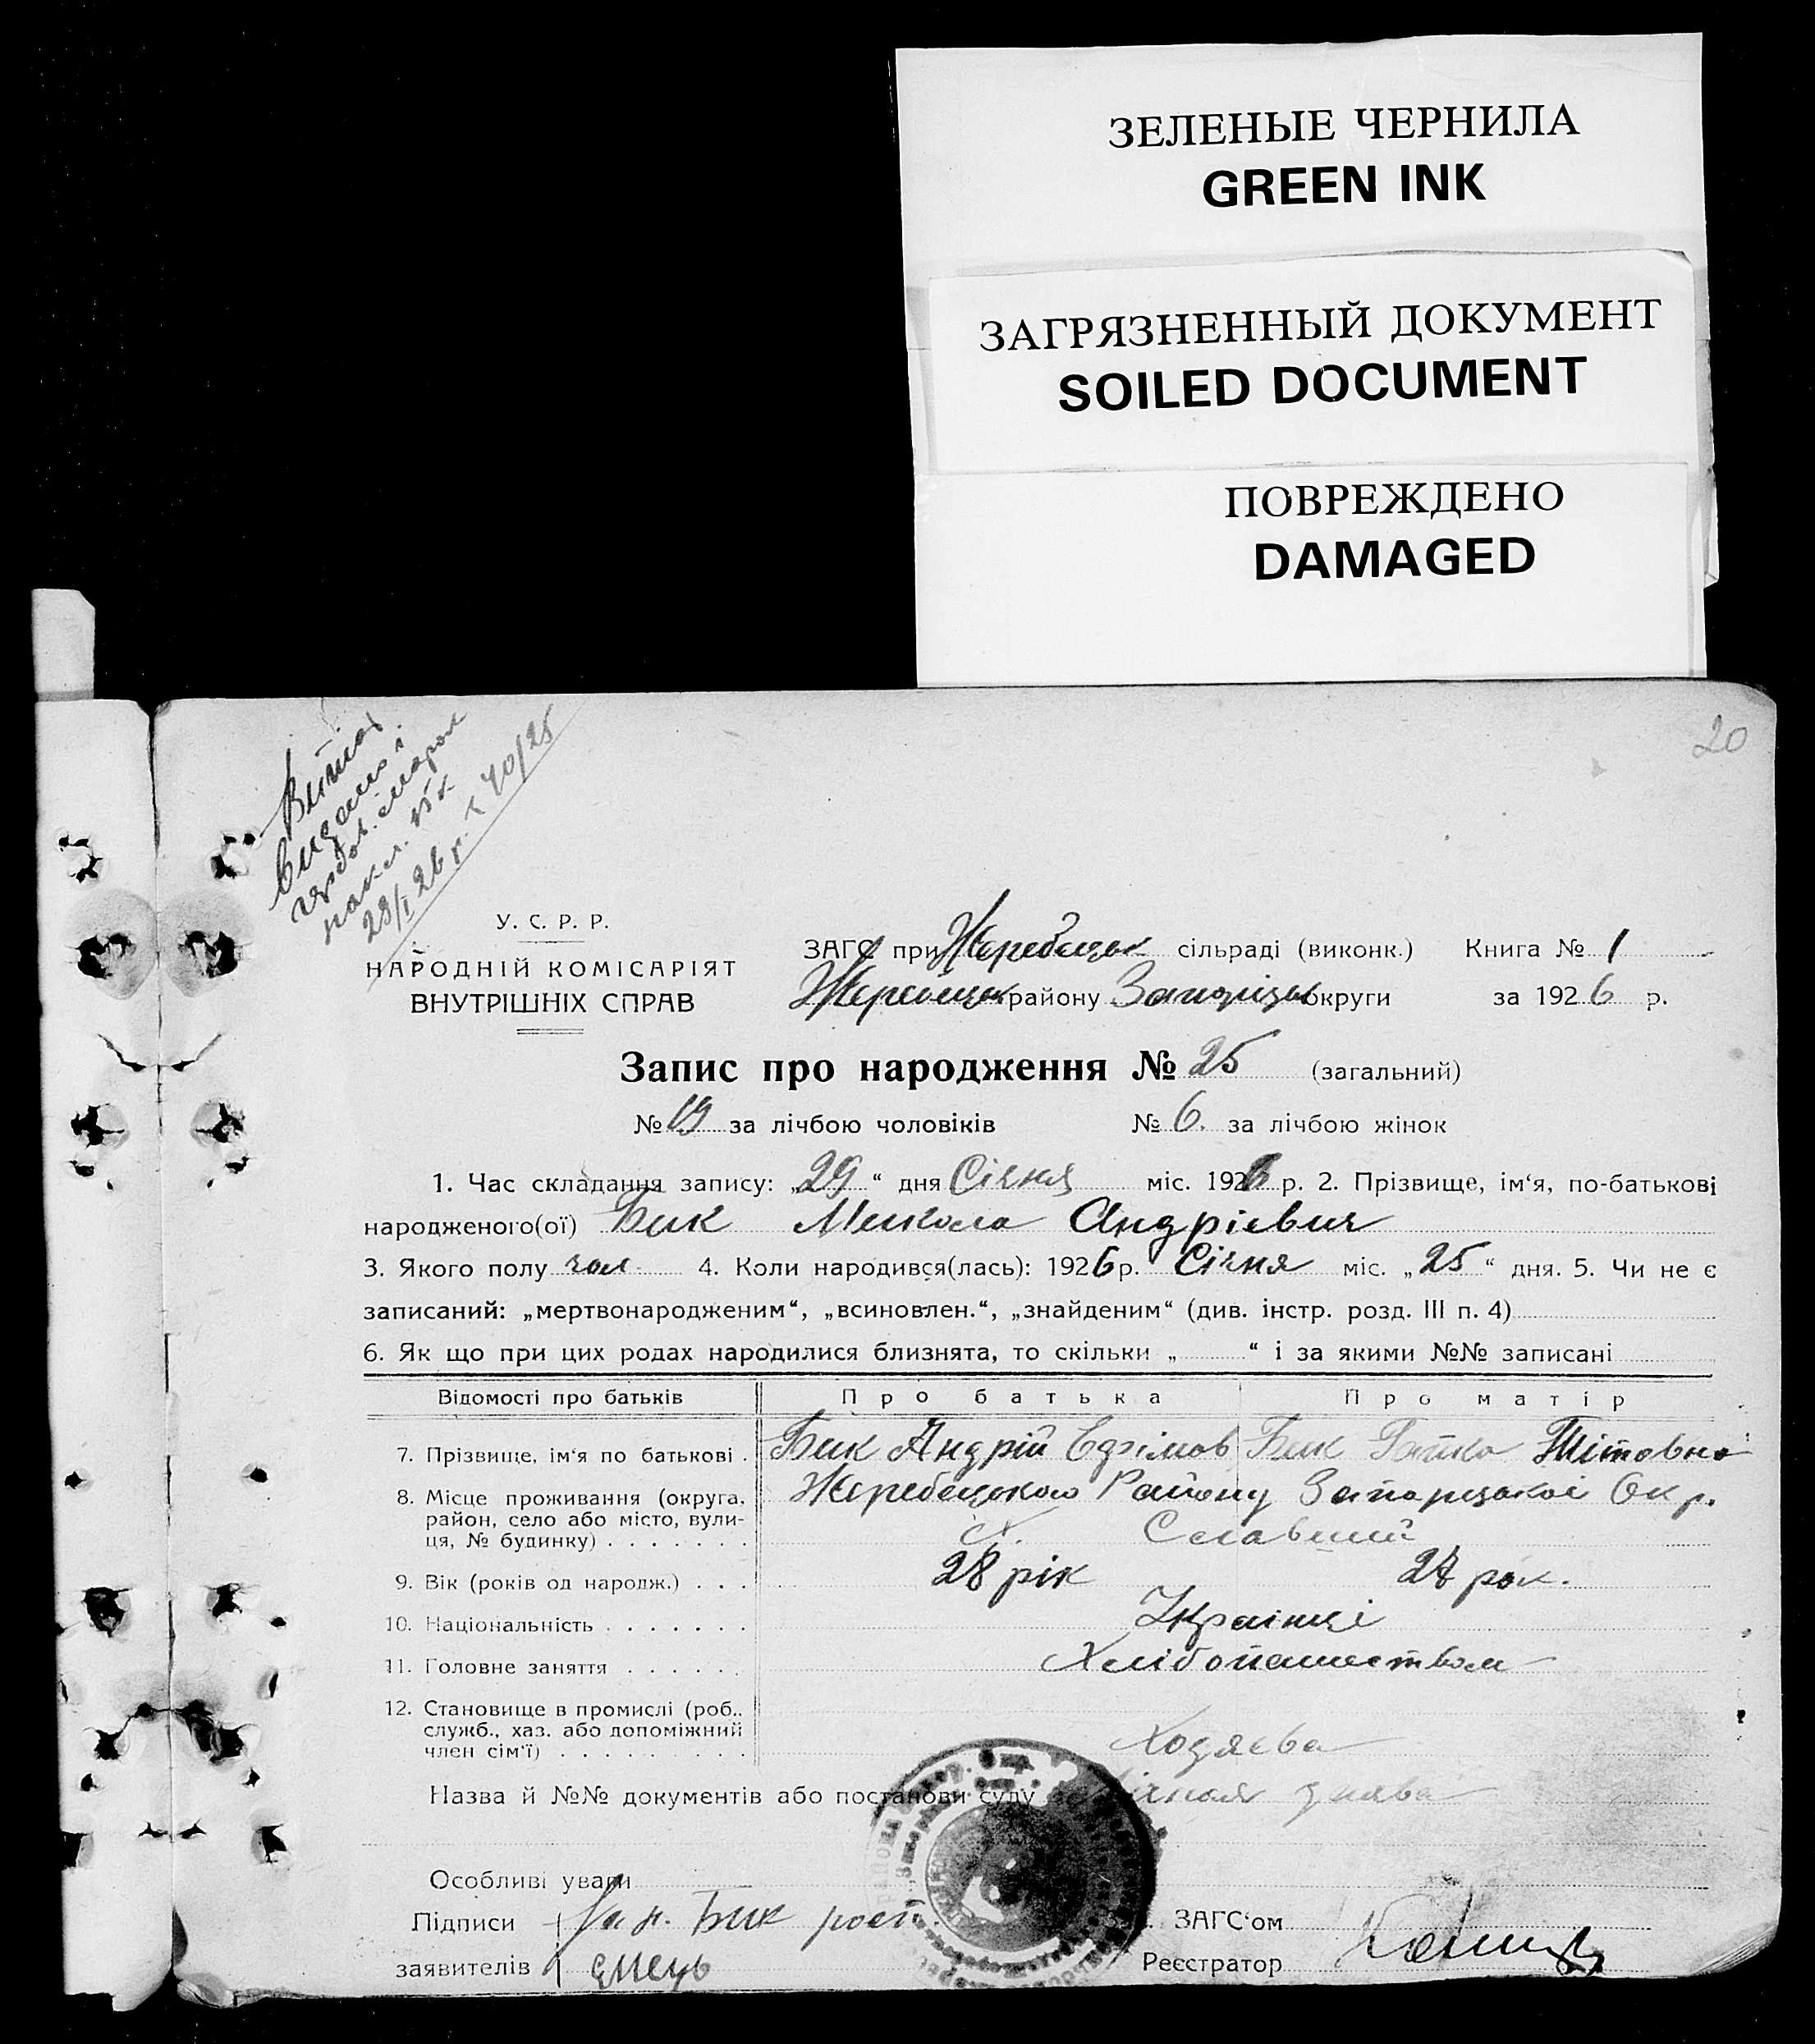 ЗЕЛЕНЫЕ ЧЕРНИЛА
GREEN INK
ЗАГРЯЗНЕННЫЙ ДОКУМЕНТ
SOILED DOCUMENT
ПОВРЕЖДЕНО
DAMAGED
20
28/I 26 р. 40/25
У. С. Р. Р.
НАРОДНІЙ КОМІСАРІЯТ
ВНУТРІШНІХ СПРАВ
ЗАГС при Жеребецьк сільраді (виконк.) Книга № 1
району Запорізьк округи за 1926 р.
Запис про народження № 25 (загальний)
№ 19 за лічбою чоловіків № 6. за лічбою жінок
1. Час складання запису: „29“ дня Січня міс. 1926 р. 2. Прізвище, ім'я, по-батькові
народженого(ої) Бик Микола Андрієвич
3. Якого полу чол 4. Коли народився(лась): 1926 р. Січня міс. „25“ дня. 5. Чи не є
записаний: „мертвонародженим“, „всиновлен.“, „знайденим“ (див. інстр. розд. III п. 4)
6. Як що при цих родах народилися близнята, то скільки „ “ і за якими №№ записані
Відомості про батьків Про батька Про матір
7. Прізвище, ім'я по батькові . Бик Андрій Бик Тітовна
8. Місце проживання (округа, район, село або місто, вулиця, № будинку) Жеребецького Району Запорізської Окр.
с.
9. Вік (років од народж.) . . . 28 рік рок.
10. Національність . . . . . . . Українці
11. Головне заняття . . . . . . Хлібопашеством
12. Становище в промислі (роб., служб., хаз. або допоміжний член сім'ї) . . . . . . . . . Хозяєва
Назва й №№ документів або постанови суду
Особливі уваги
Підписи Бик
заявителів
ЗАГС'ом
Реєстратор